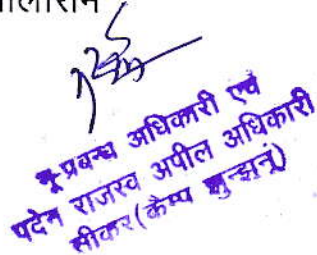 लाराम
भू-प्रबन्ध अधिकारी एवं
पदेन राजस्व अपील अधिकारी
सीकर (कैम्प झुन्झुनूं)